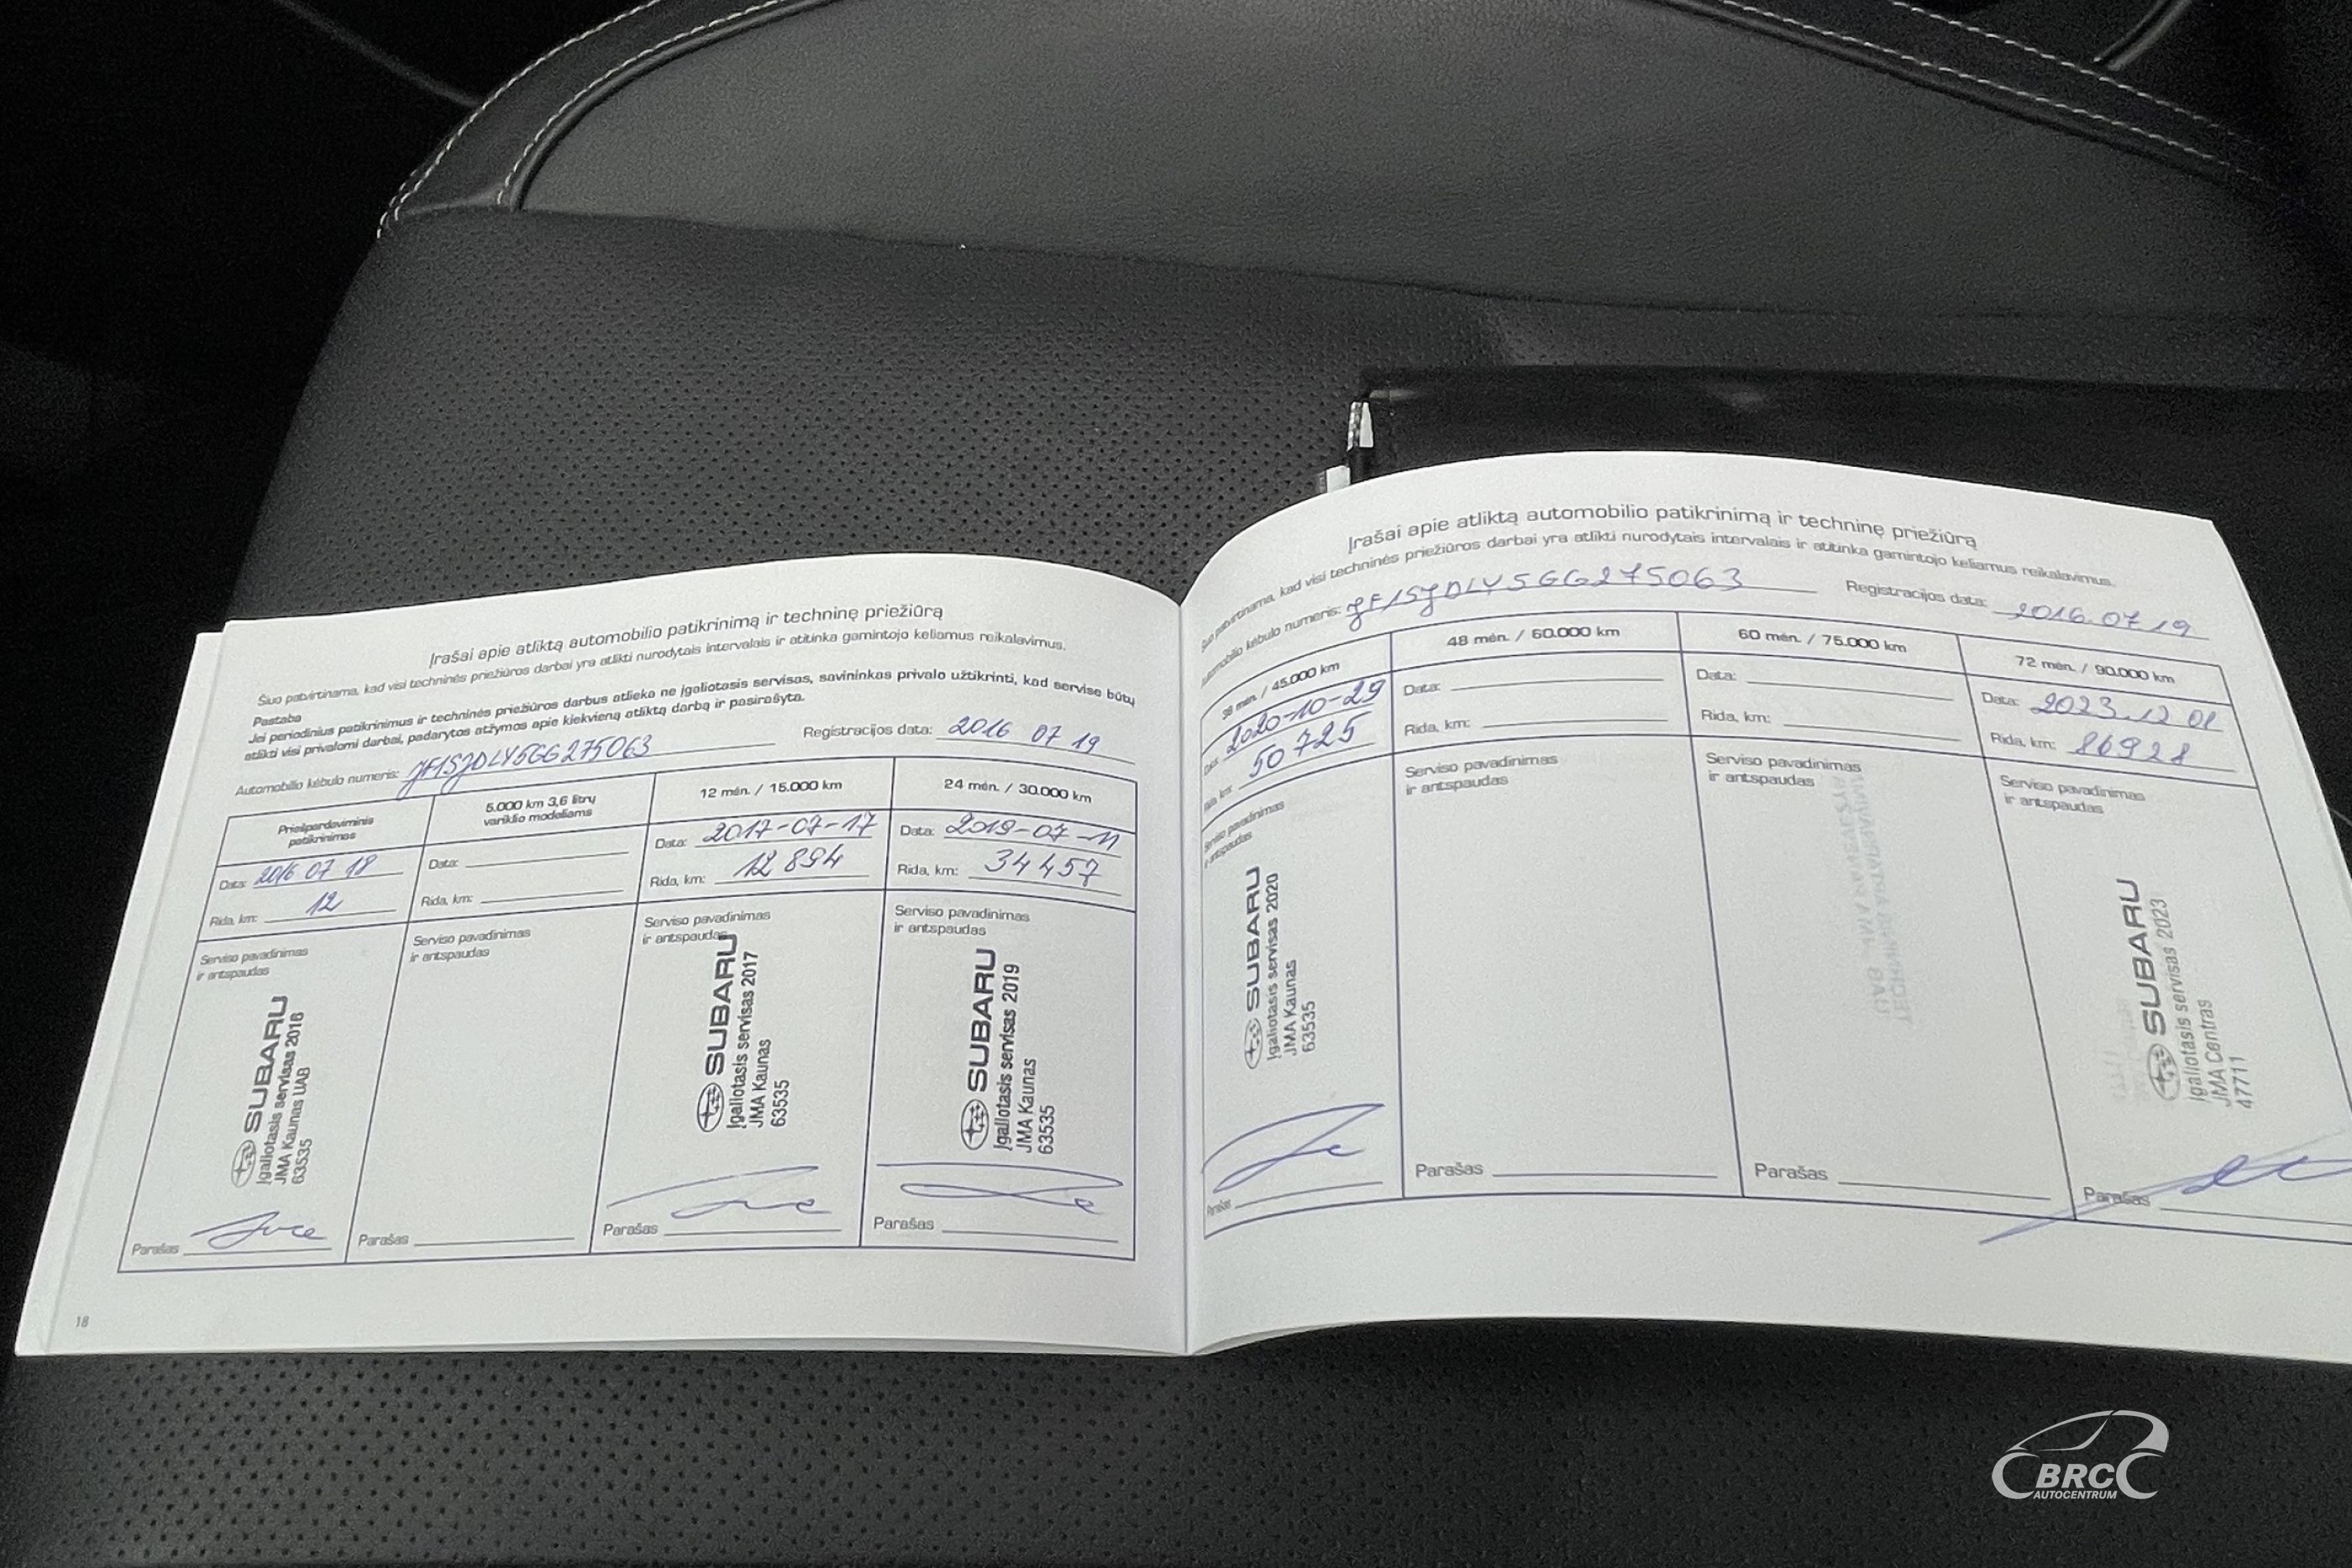 Įrašai apie atliktą automobilio patikrinimą ir techninę priežiūrą
Šiuo patvirtinama, kad visi techninės priežiūros darbai yra atlikti nurodytais intervalais ir atitinka gamintojo keliamus reikalavimus.
Pastaba
Jei periodinius patikrinimus ir techninės priežiūros darbus atlieka ne įgaliotasis servisas, savininkas privalo užtikrinti, kad servise būtų
atlikti visi privalomi darbai, padarytos atžymos apie kiekvieną atliktą darbą ir pasirašyta.
Automobilio kėbulo numeris: JF1SJDLY5GG275063 Registracijos data: 2016 07 19
Priešpardaviminis
patikrinimas
Data: 2016 07 18
Rida, km: 12
Serviso pavadinimas
ir antspaudas
SUBARU
Įgaliotasis servisas 2016
JMA Kaunas UAB
63535
Parašas
5.000 km 3,6 litrų
variklio modeliams
Data:
Rida, km:
Serviso pavadinimas
ir antspaudas
Parašas
12 mėn. / 15.000 km
Data: 2017-07-17
Rida, km: 12 894
Serviso pavadinimas
ir antspaudas
SUBARU
Įgaliotasis servisas 2017
JMA Kaunas
63535
Parašas
24 mėn. / 30.000 km
Data: 2019-07-11
Rida, km: 34 457
Serviso pavadinimas
ir antspaudas
SUBARU
Įgaliotasis servisas 2019
JMA Kaunas
63535
Parašas
18
Įrašai apie atliktą automobilio patikrinimą ir techninę priežiūrą
Šiuo patvirtinama, kad visi techninės priežiūros darbai yra atlikti nurodytais intervalais ir atitinka gamintojo keliamus reikalavimus.
Automobilio kėbulo numeris: JF1SJDLY5GG275063 Registracijos data: 2016.07.19
36 mėn. / 45.000 km
Data: 2020-10-29
Rida, km: 50 725
Serviso pavadinimas
ir antspaudas
SUBARU
Įgaliotasis servisas 2020
JMA Kaunas
63535
Parašas
48 mėn. / 60.000 km
Data:
Rida, km:
Serviso pavadinimas
ir antspaudas
Parašas
60 mėn. / 75.000 km
Data:
Rida, km:
Serviso pavadinimas
ir antspaudas
Parašas
72 mėn. / 90.000 km
Data: 2023.12 01
Rida, km: 86928
Serviso pavadinimas
ir antspaudas
SUBARU
Įgaliotasis servisas 2023
JMA Centras
47711
Parašas
BRC
AUTOCENTRUM